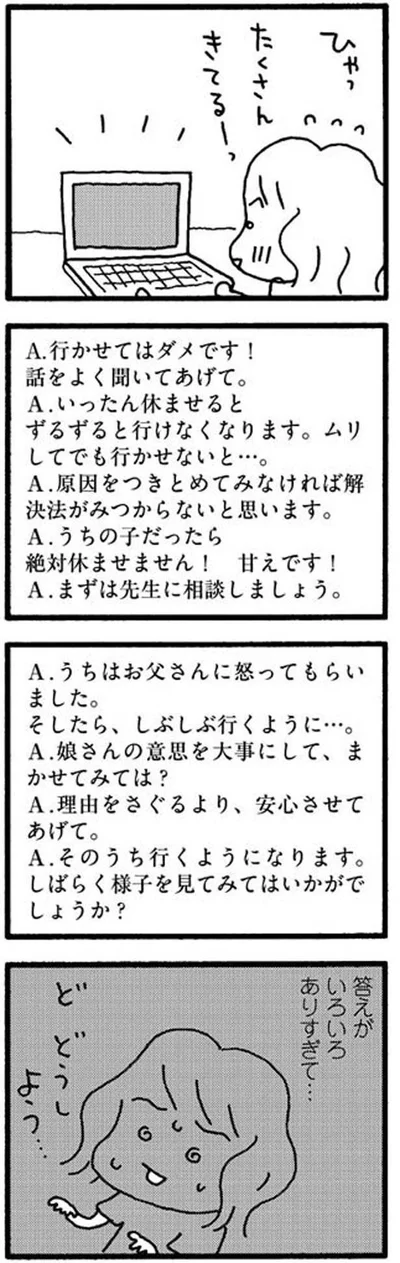 ひゃっ
たくさん
きてるーっ
A.行かせてはダメです！
話をよく聞いてあげて。
A.いったん休ませると
ずるずると行けなくなります。ムリ
してでも行かせないと…。
A.原因をつきとめてみなければ解
決法がみつからないと思います。
A.うちの子だったら
絶対休ませません！　甘えです！
A.まずは先生に相談しましょう。
A.うちはお父さんに怒ってもらい
ました。
そしたら、しぶしぶ行くように…。
A.娘さんの意思を大事にして、ま
かせてみては？
A.理由をさぐるより、安心させて
あげて。
A.そのうち行くようになります。
しばらく様子を見てみてはいかがで
しょうか？
答えが
いろいろ
ありすぎて…
ど どうし
よう…